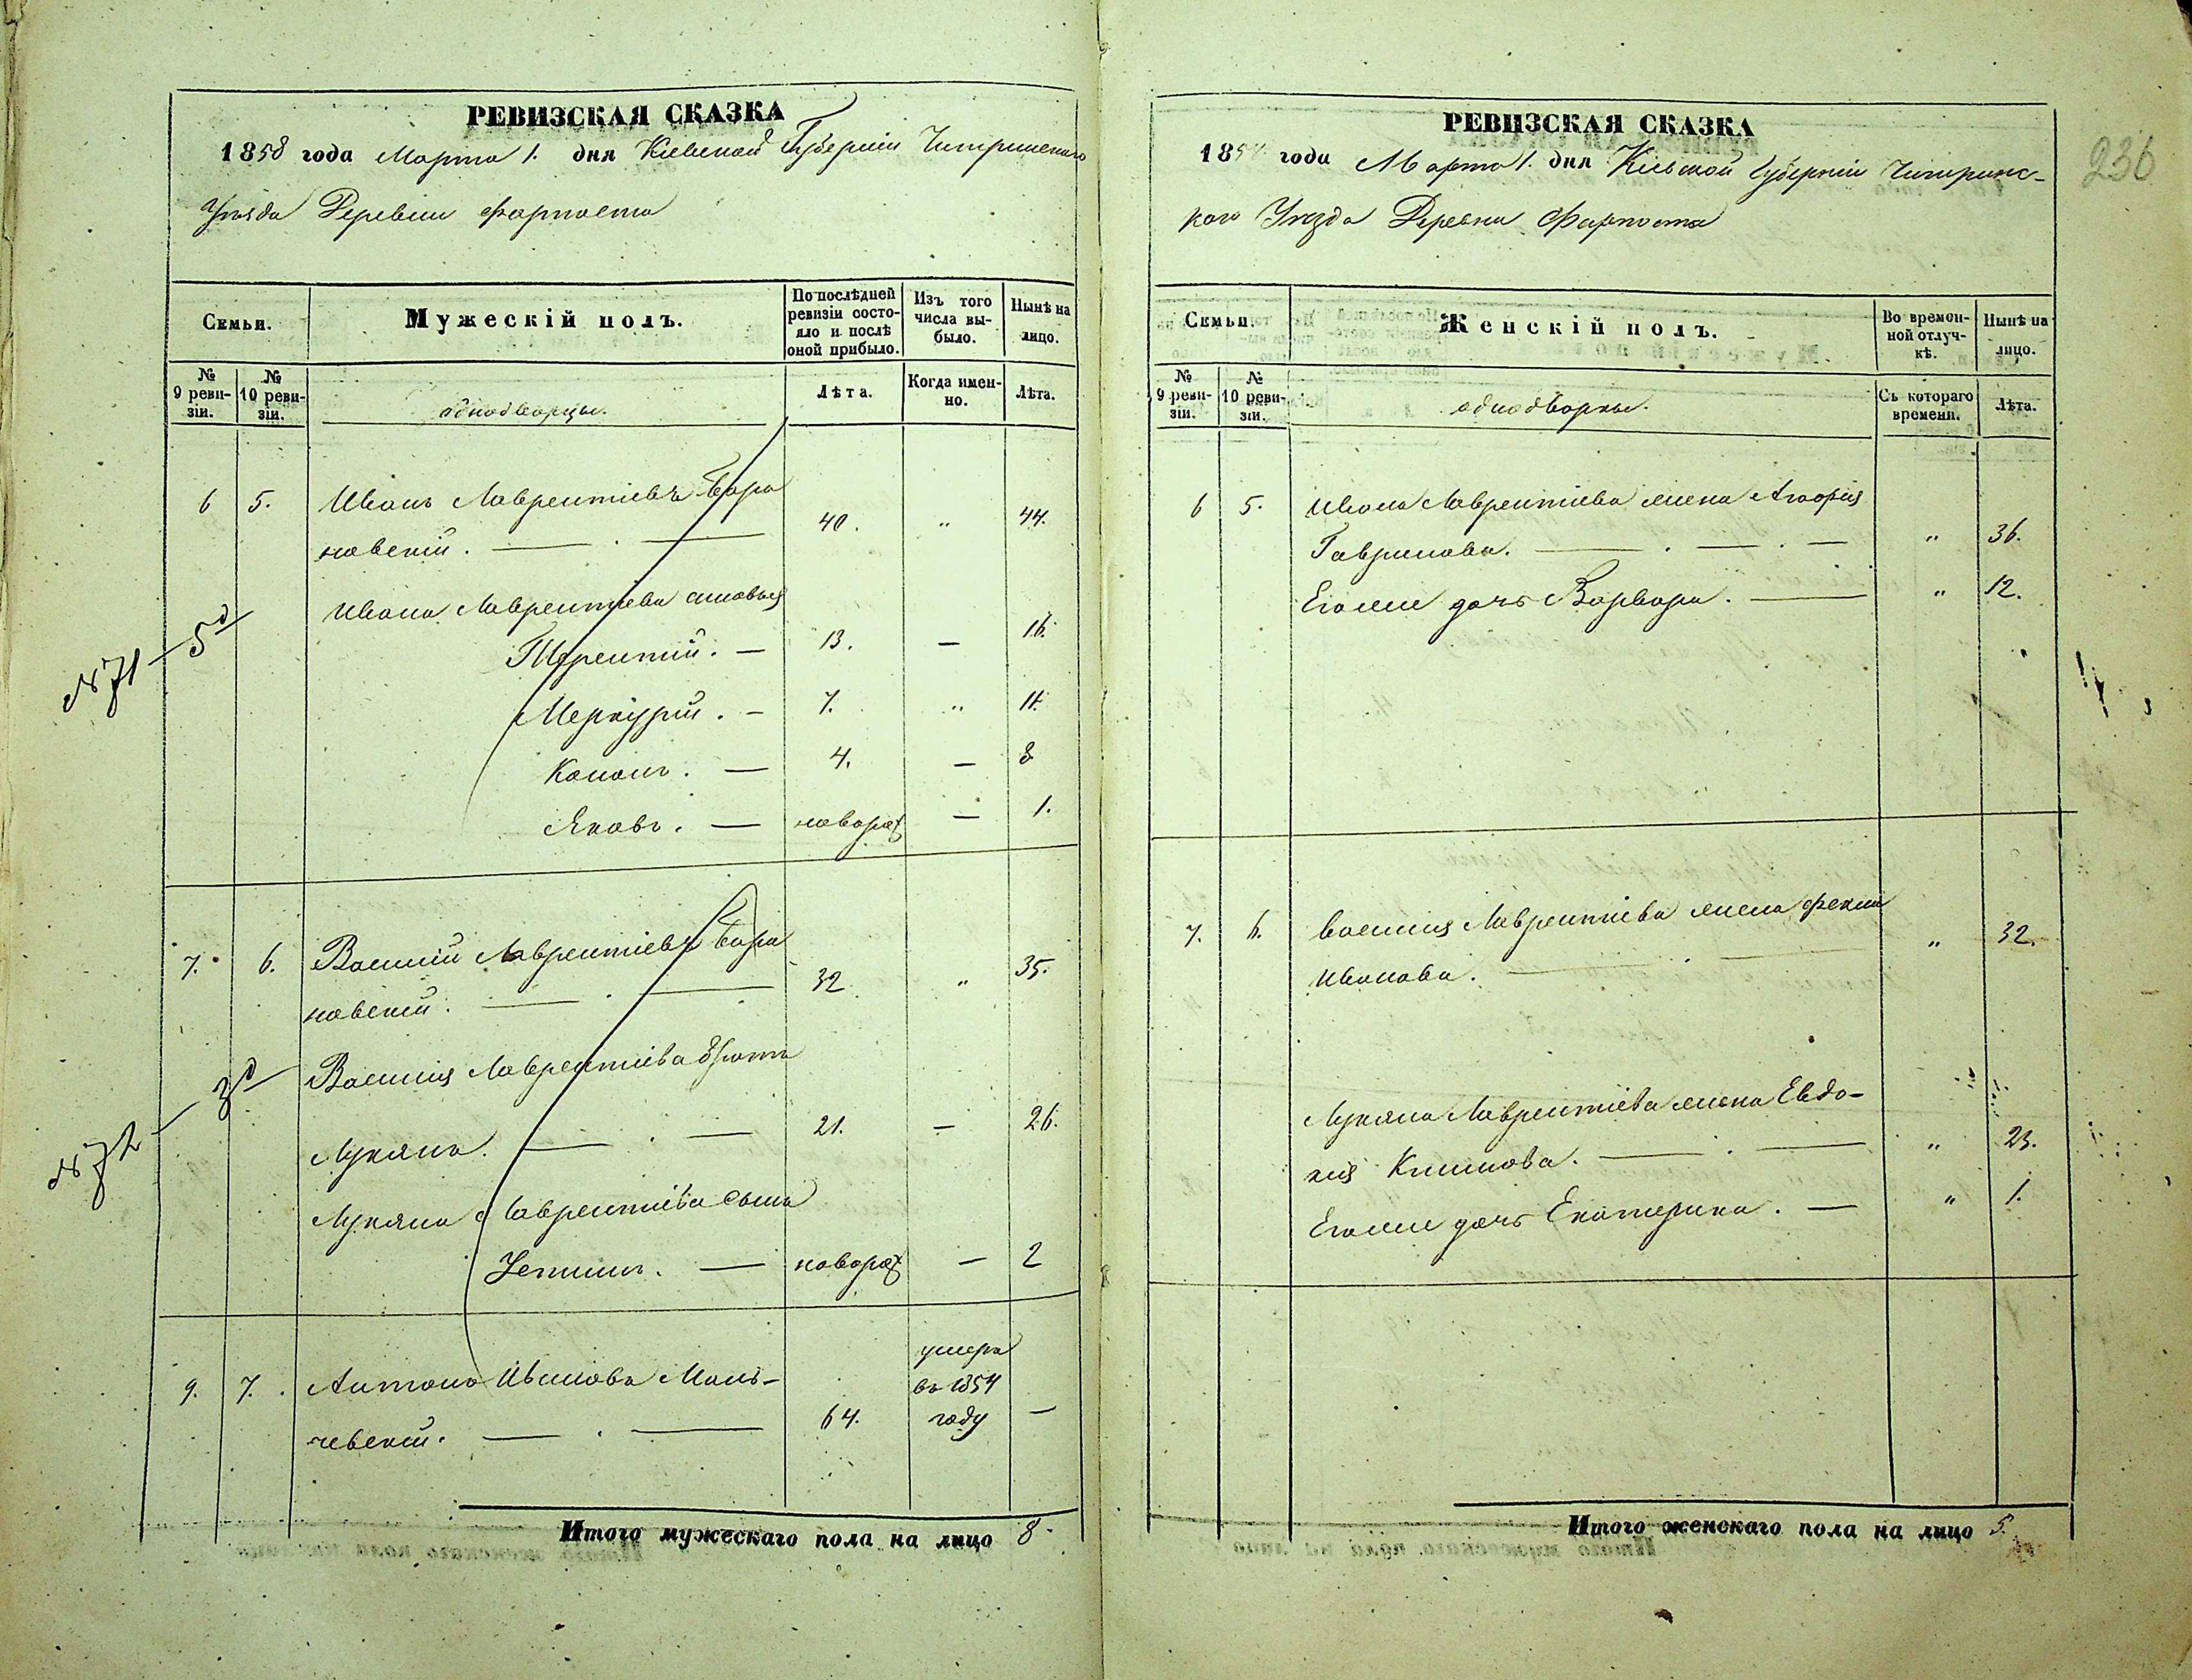 РЕВИЗСКАЯ СКАЗКА
1858 года Марта 1. дня Кіевской Губерніи Чигринскаго
Уѣзда Деревни Фарпоста
Семьи.
Мужескій полъ.
По послѣдней
ревизіи состо-
яло и послѣ
оной прибыло.
Изъ того
числа вы-
было.
Нынѣ на
лицо.
№
9 реви-
зіи.
№
10 реви-
зіи.
однодворцы.
Лѣта.
Когда имен-
но.
Лѣта.
6 5. Иванъ Лаврентіевъ Бара
новскій. — . — 40. " 44.
Ивана Лаврентіева сыновья
Терентій. — 13. — 16.
Меркурій. — 7. " 11.
Кононъ. — 4. — 8
Яковъ. — новорож — 1.
№ 71 — 5 д
7. 6. Василій Лаврентіевъ Бара
новскій. — . — 32 " 35.
Василія Лаврентіева братъ
Лукянъ. — . — 21. — 26.
Лукяна Лаврентіева сынъ
— новорож — 2
№ 72 — 3 д
9. 7. Антонъ Мань-
чевскій. — . — 64. умеръ
въ 1854
году —
Итого мужескаго пола на лицо 8.
РЕВИЗСКАЯ СКАЗКА
1858 года Марта 1. дня Кіевской Губерніи Чигринс-
каго Уѣзда Деревни Фарпоста
236
Семьи.
Женскій полъ.
Во времен-
ной отлуч-
кѣ.
Нынѣ на
лицо.
№
9 реви-
зіи.
№
10 реви-
зіи.
однодворки.
Съ котораго
времени.
Лѣта.
6 5. Ивана Лаврентіева жена Агафія
Гаврилова. — . — . — " 36.
Его же дочь Варвара. — " 12.
7. 6. Василія Лаврентіева жена Фекла
Иванова. — . — " 32.
Лукяна Лаврентіева жена Евдо-
кія Климова. — . — " 23.
Его же дочь Екатерина. — " 1.
Итого женскаго пола на лицо 5.